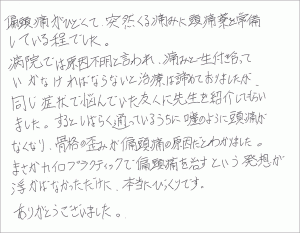 偏頭痛がひどくて、突然くる痛みに頭痛薬を常備
している程でした。
病院では原因不明と言われ、痛みと一生付き合って
いかなければならないと治療は諦めておりましたが、
同じ症状で悩んでいた友人に先生を紹介してもらい
ました。するとしばらく通っているうちに嘘のように頭痛が
なくなり、骨格の歪みが偏頭痛の原因だとわかりました。
まさかカイロプラクティックで偏頭痛を治すという発想が
浮かばなかっただけに、本当にびっくりです。
ありがとうございました。